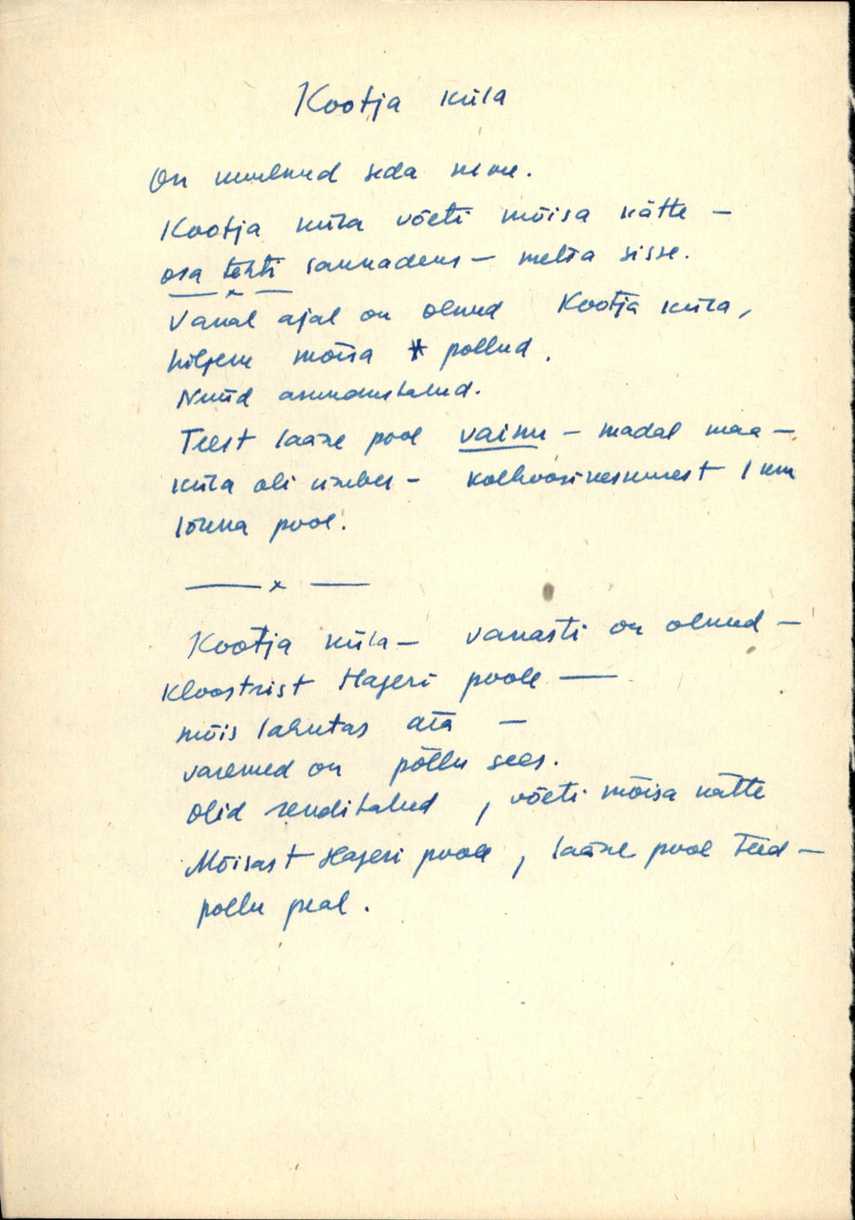 Kootja küla
On kuulnud seda nime.
Kootja küla võeti mõisa kätte –
osa tehti saunadeks – metsa sisse.
— x —
Vanal ajal on olnud Kootja küla,
hiljem mõisa põllud.
Nüüd asundustalud.
Teest lääne pool vainu – madal maa –
küla oli ümber – kolhoosikeskusest 1 km
lõuna pool.
— x —
Kootja küla – vanasti on olnud –
Kloostrist Hageri poole —
mõis lahutas ära –
varemed on põllu sees.
Olid renditalud, võeti mõisa kätte
Mõisast Hageri poole, lääne pool teed –
põllu peal.